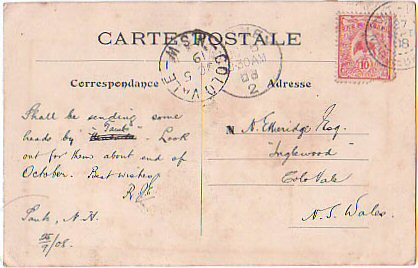 CARTE POSTALE
Correspondance
Adresse
Shall be sending some
heads by "Tanba". Look
out for them about end of
October. Best wishes
Tank, N.H.
25/9/08.
N. Etheridge Esq.
"Inglewood"
Colo Vale
N. S. Wales.
COLO VALE
N.S.W
30AM
2
10